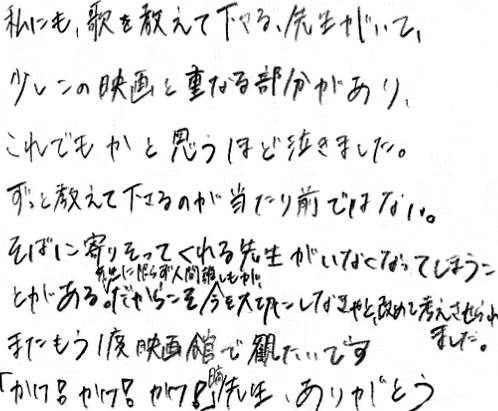 私にも、歌を教えて下さる、先生がいて、
少しこの映画と重なる部分があり、
これでもかと思うほど泣きました。
ずっと教えて下さるのが当たり前ではない。
そばに寄りそってくれる先生がいなくなってしまうこ
先生に限らず人間誰しもが、
とがある。だからこそ今を大切にしなきゃと、改めて考えさせられ
ました。
またもう1度映画館で観たいです
「かけ!かけ!かけ!」先生、ありがとう